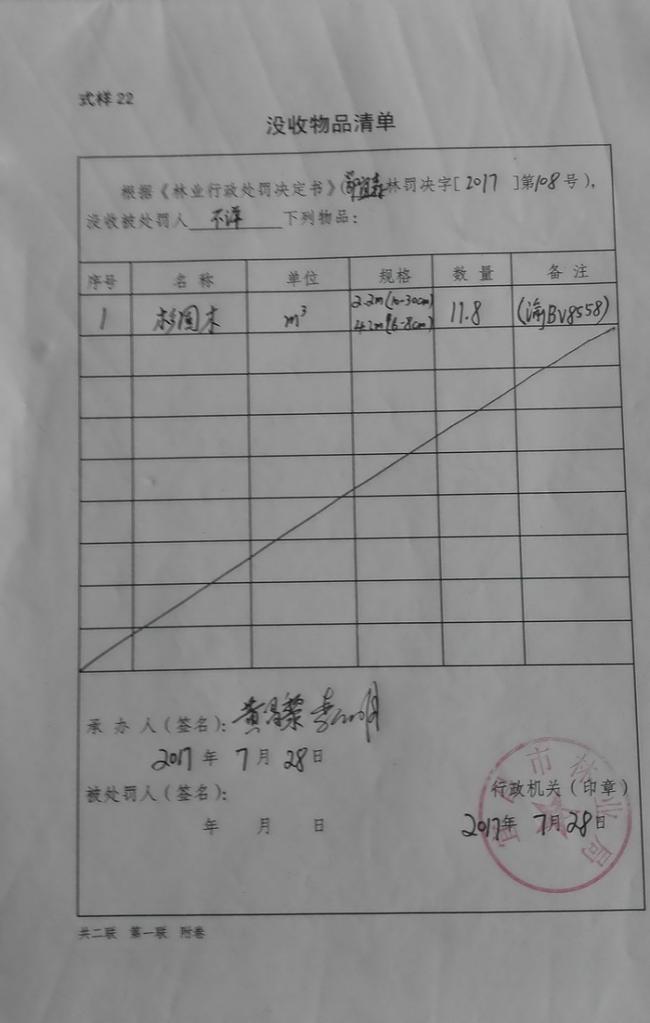 式样 22
没收物品清单
根据《林业行政处罚决定书》(林罚决字[2017]第108号),
没收被处罚人 不详 下列物品:
序号 名称 单位 规格 数量 备注
1 杉圆木 m³ 2.2m(10-30cm) 11.8 (渝BV8558)
4.2m(6-8cm)
承办人(签名):
2017年 7月 28日
被处罚人(签名):
年 月 日
行政机关(印章)
2017年 7月 28日
市林业局
共二联 第一联 附卷